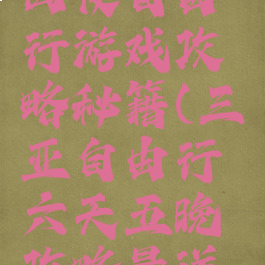 行游戏攻
略秘籍(三
亚自由行
六天五晚
攻略最详